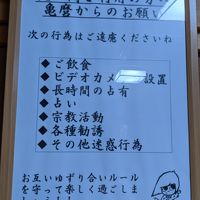 亀麿からのお願い
次の行為はご遠慮くださいね
◆ご飲食
◆ビデオカメラ 設置
◆長時間の占有
◆占い
◆宗教活動
◆各種勧誘
◆その他迷惑行為
お互いゆずり合いルール
を守って楽しく過ごしま